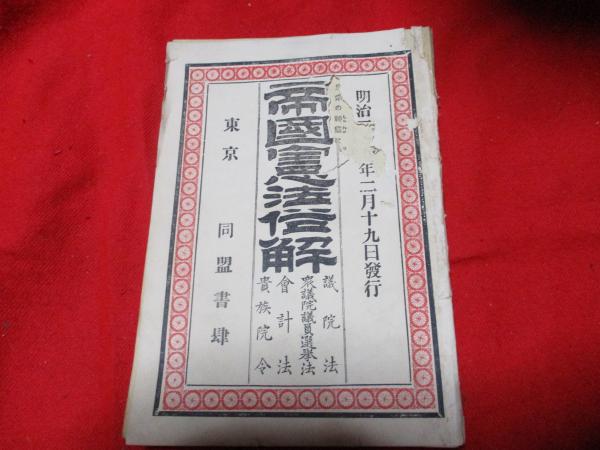 明治 年二月十九日發行
帝國憲法俗解
議院法
衆議院議員選擧法
會計法
貴族院令
東京 同盟書肆